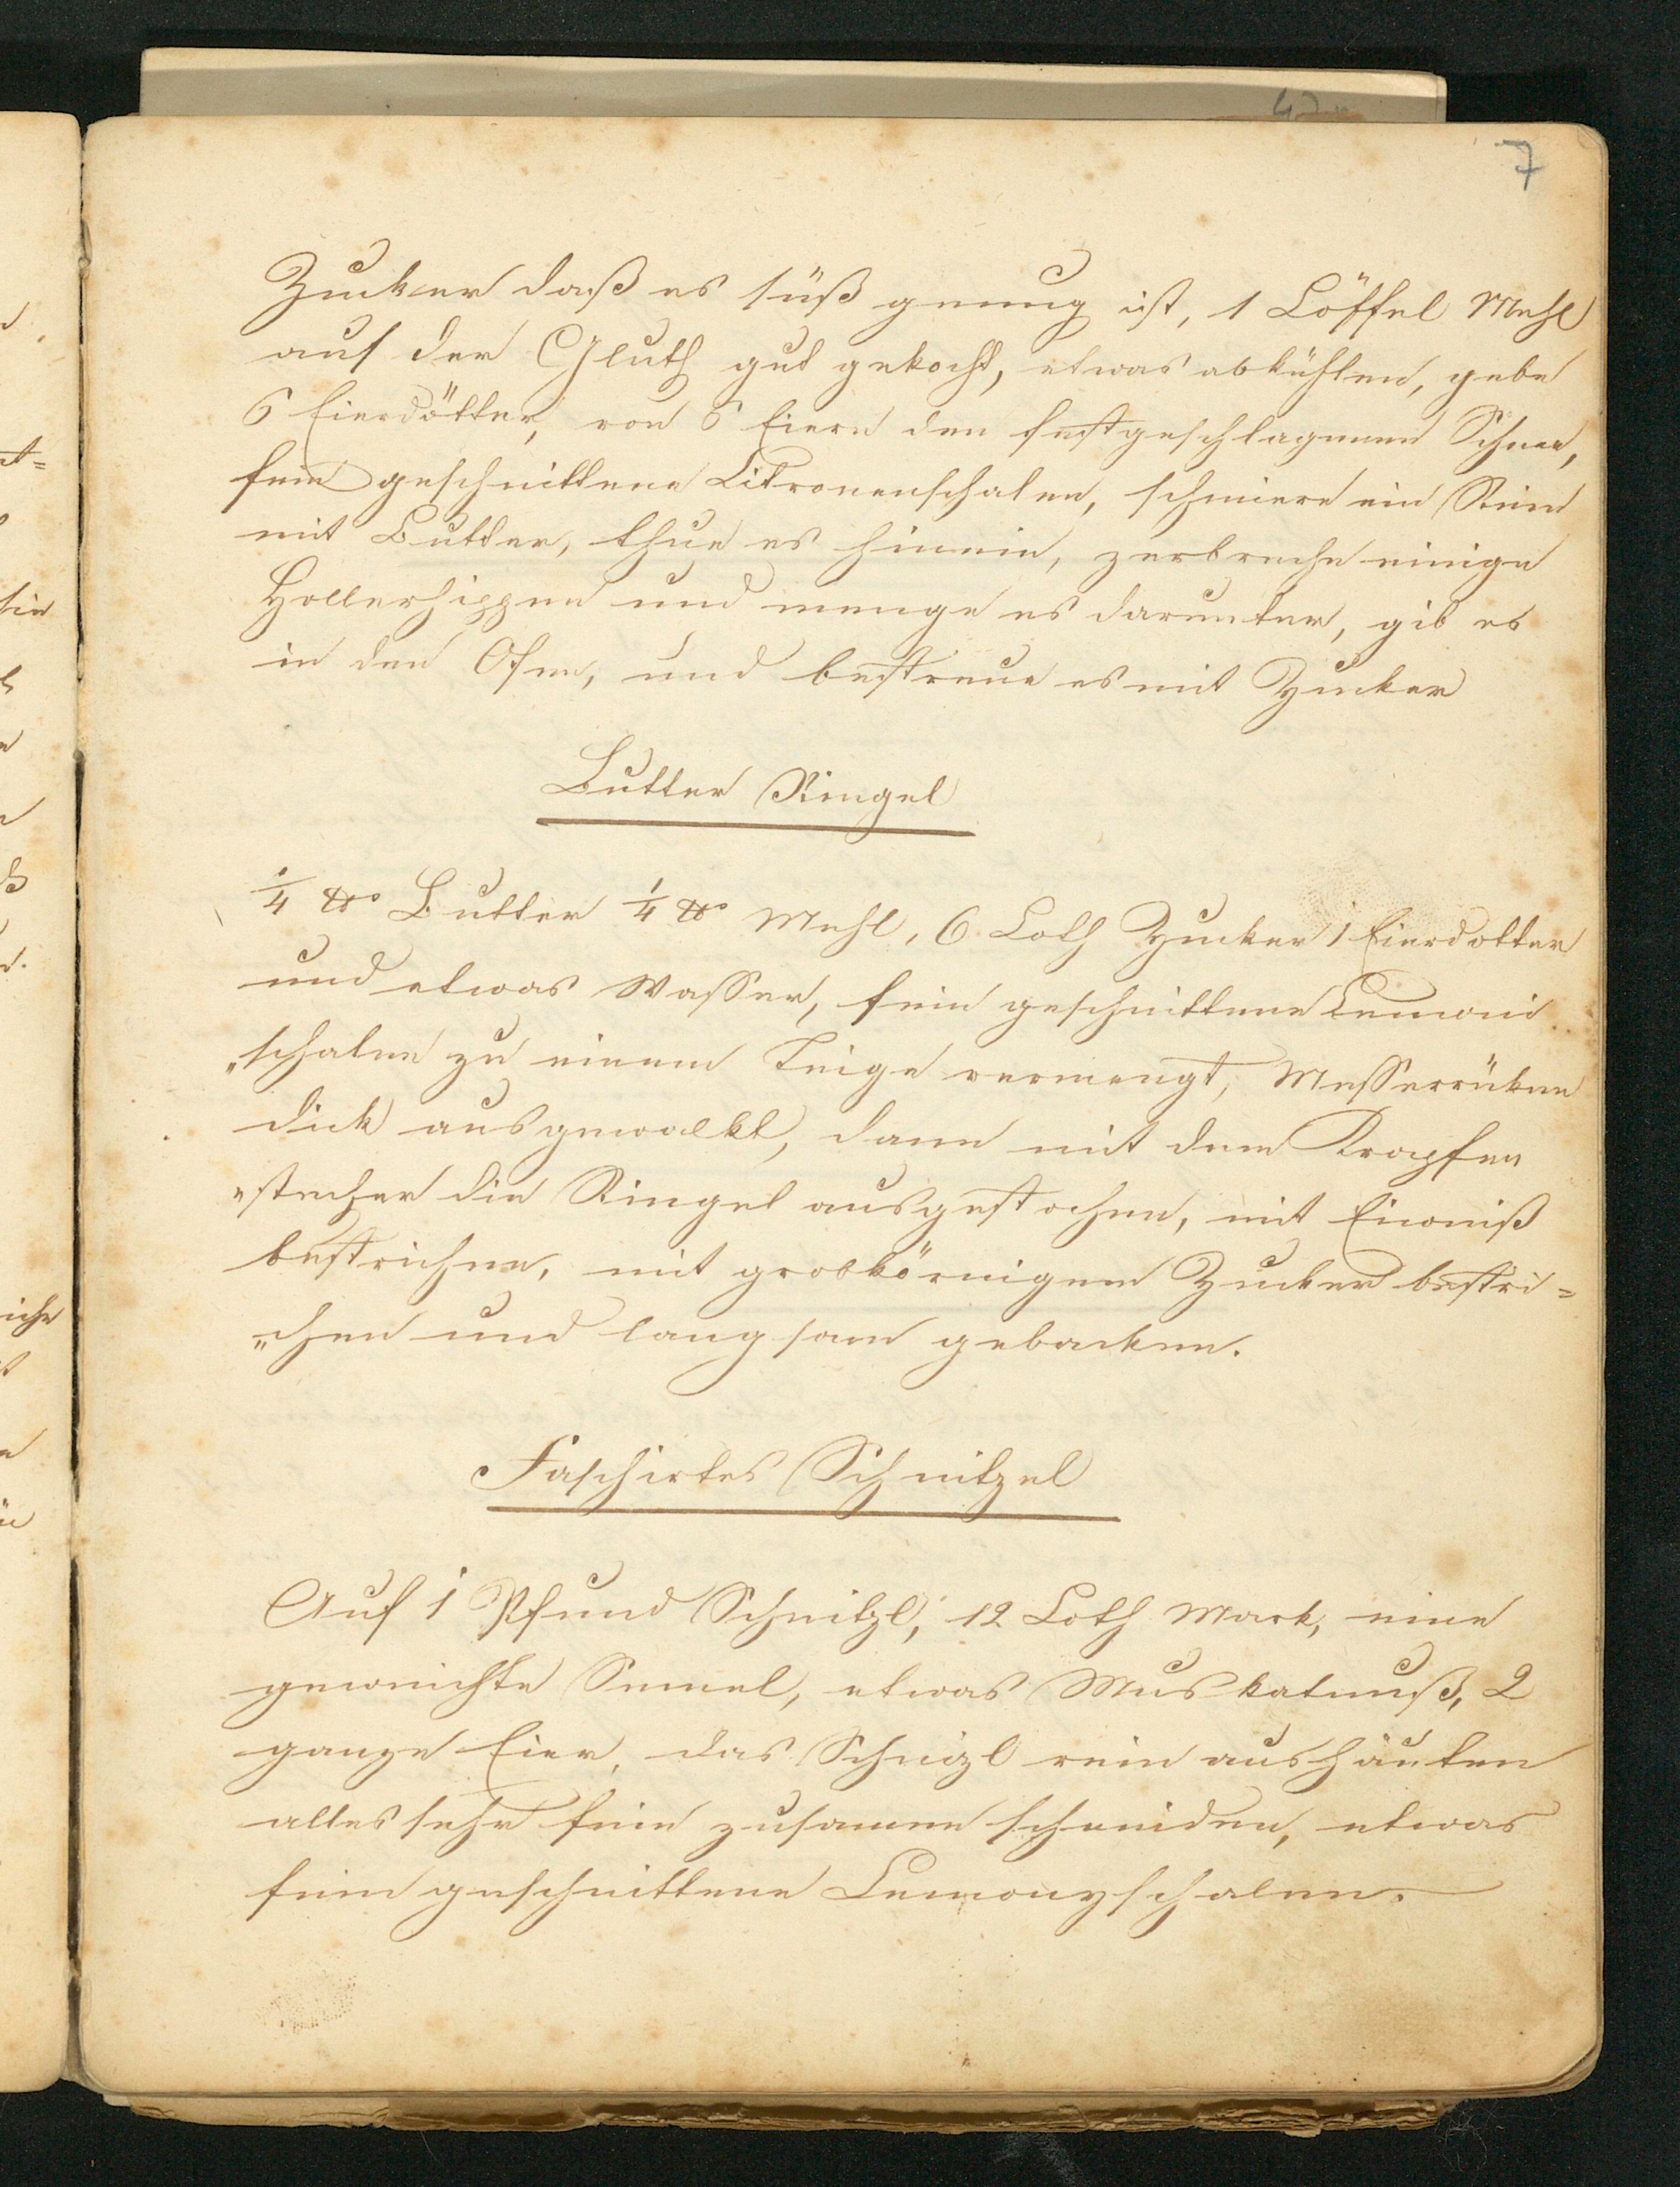 7
Zucker daß es süß genug ist, 1 Löffel Mehl
auf der Gluth gut gekocht, etwas abkühlen, gebe
6 Eierdötter, von 6 Eiern den festgeschlagenen Schnee,
fein geschnittene Citronenschalen, schmiere ein Rein
mit Butter, thue es hinein, zerbreche einige
Hollerhippen und menge es darunter, gib es
in den Ofen, und bestreue es mit Zucker
Butter Ringel
1/4 ℔ Butter 1/4 ℔ Mehl, 6 Loth Zucker 1 Eierdotter
und etwas Wasser, fein geschnittene Lemoni
„schalen zu einem Teige vermengt, Messerrüken
dick ausgewalkt, dann mit dem Krapfen
„stecher die Ringel ausgestochen, mit Eiweiß
bestrichen, mit grobkörnigem Zucker bestri=
„chen und langsam gebacken.
Faschirtes Schnitzel
Auf 1 Pfund Schnitzl, 12 Loth Mark, eine
geweichte Semel, etwas Muskatnuß, 2
ganze Eier, das Schnizl rein aushäuten
alles sehr fein zusamen schneiden, etwas
fein geschnittene Lemonyschalen.